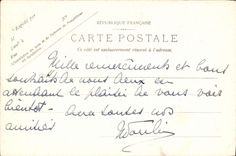 RÉPUBLIQUE FRANÇAISE
CARTE POSTALE
Ce côté est exclusivement réservé à l'adresse.
Mille remerciements et bons
souhaits de nous deux en
attendant le plaisir de vous voir
bientôt - avec toutes nos
amitiés